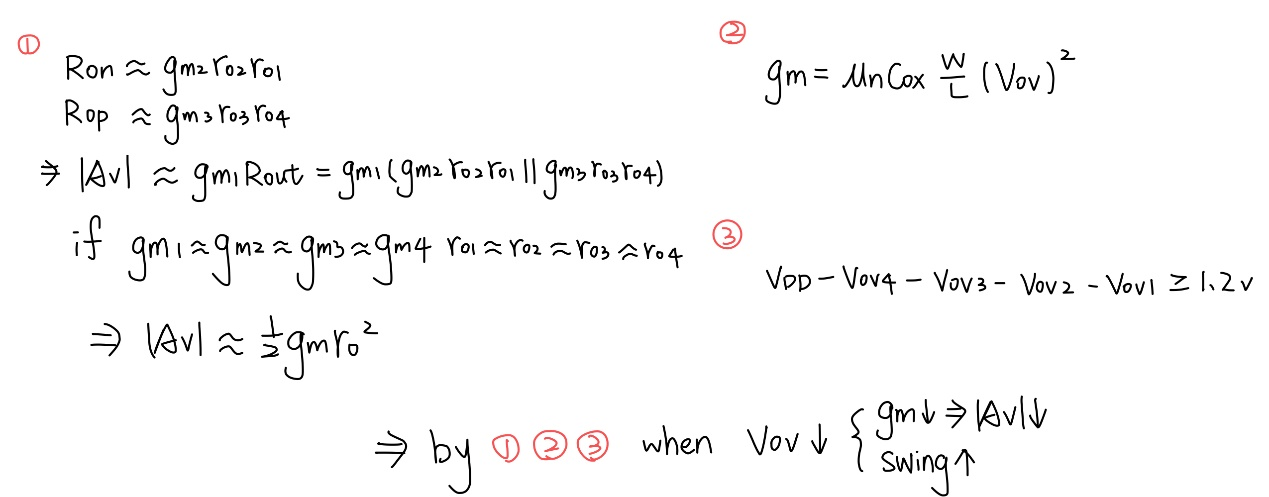 ①
Ron ≈ gm2 ro2 ro1
Rop ≈ gm3 ro3 ro4
⇒ |Av| ≈ gm1 Rout = gm1 (gm2 ro2 ro1 || gm3 ro3 ro4)
if gm1 ≈ gm2 ≈ gm3 ≈ gm4 ro1 ≈ ro2 ≈ ro3 ≈ ro4
⇒ |Av| ≈ 1/2 gm ro²
②
gm = μn Cox W/L (Vov)²
③
VDD - Vov4 - Vov3 - Vov2 - Vov1 ≥ 1.2v
⇒ by ① ② ③ when Vov ↓ { gm↓ ⇒ |Av|↓
swing ↑